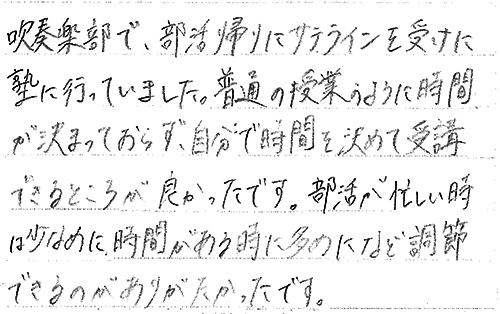 吹奏楽部で、部活帰りにサテラインを受けに
塾に行っていました。普通の授業のように時間
が決まっておらず、自分で時間を決めて受講
できるところが良かったです。部活が忙しい時
は少なめに、時間がある時に多めになど調節
できるのがありがたかったです。